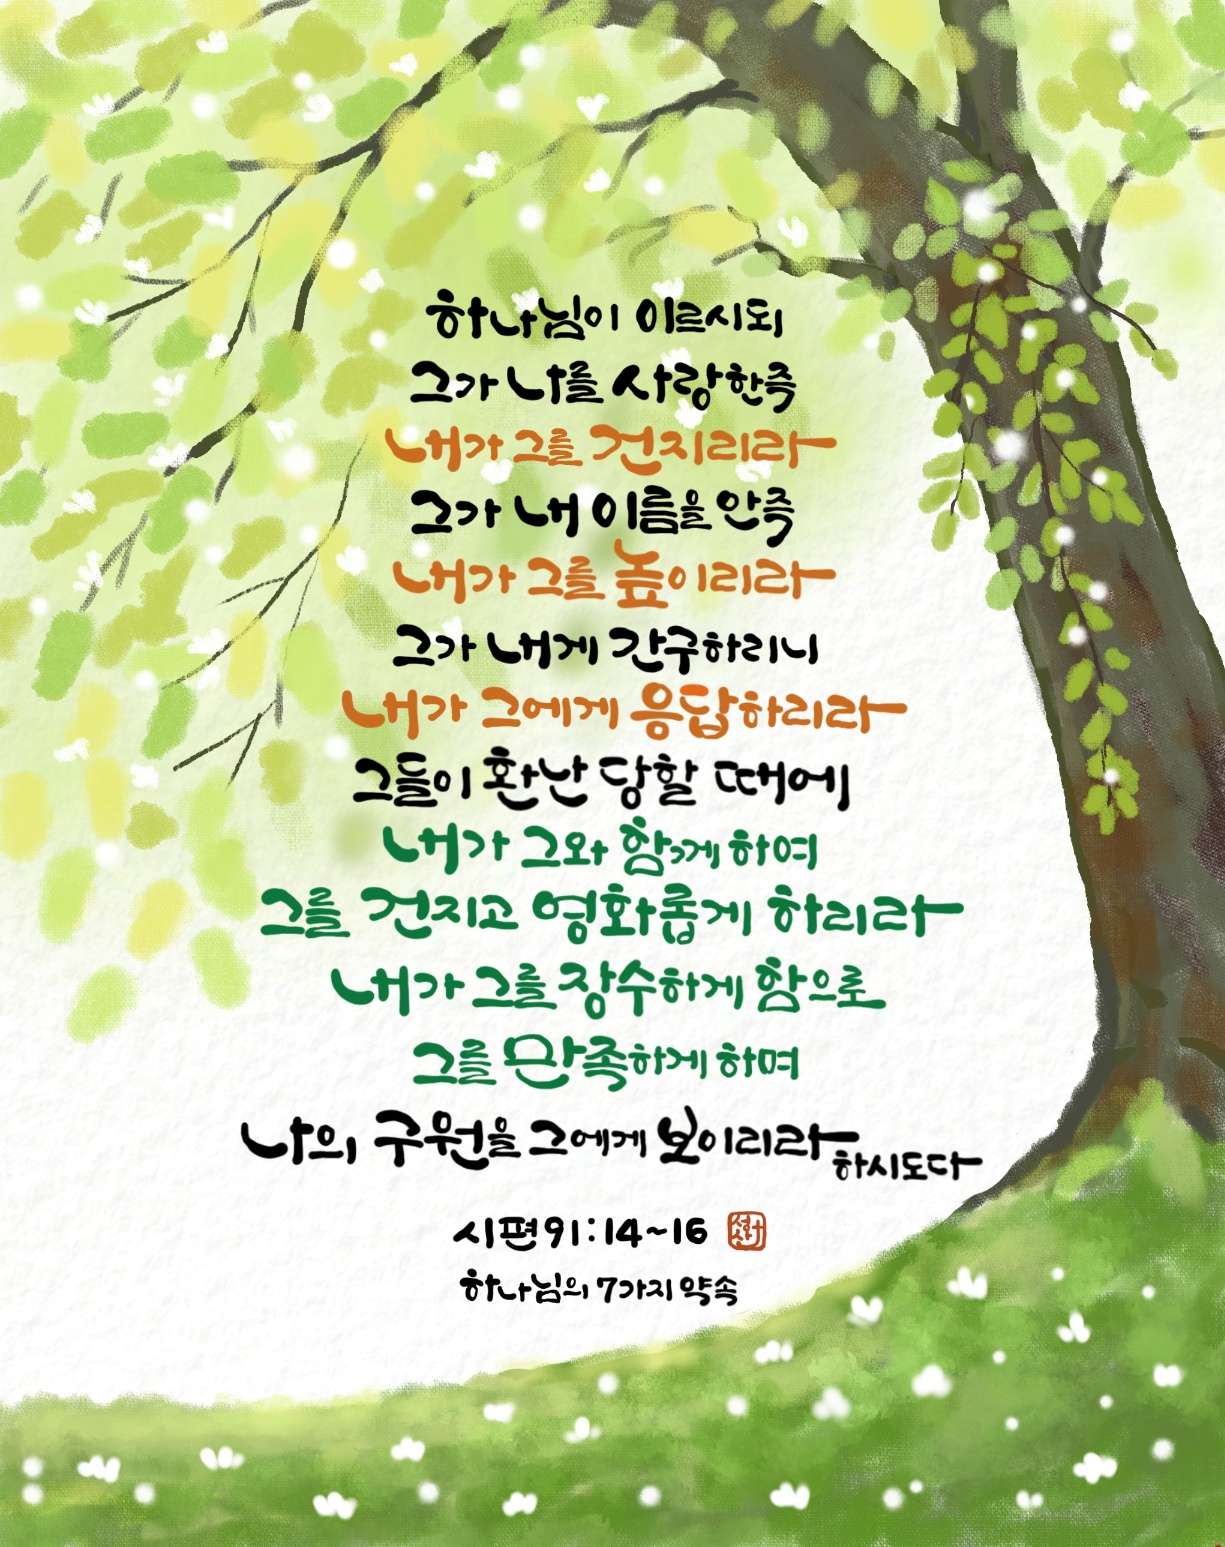 하나님이 이르시되
그가 나를 사랑한즉
내가 그를 건지리라
그가 내 이름을 안즉
내가 그를 높이리라
그가 내게 간구하리니
내가 그에게 응답하리라
그들이 환난 당할 때에
내가 그와 함께 하여
그를 건지고 영화롭게 하리라
내가 그를 장수하게 함으로
그를 만족하게 하며
나의 구원을 그에게 보이리라 하시도다
시편 91:14~16
하나님의 7가지 약속